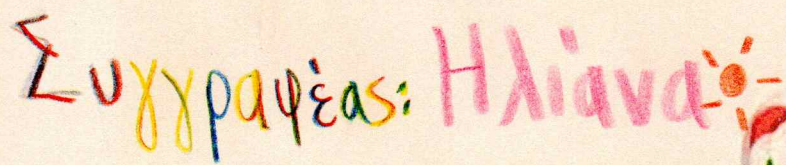 Συγγραφέας: Ηλιάνα